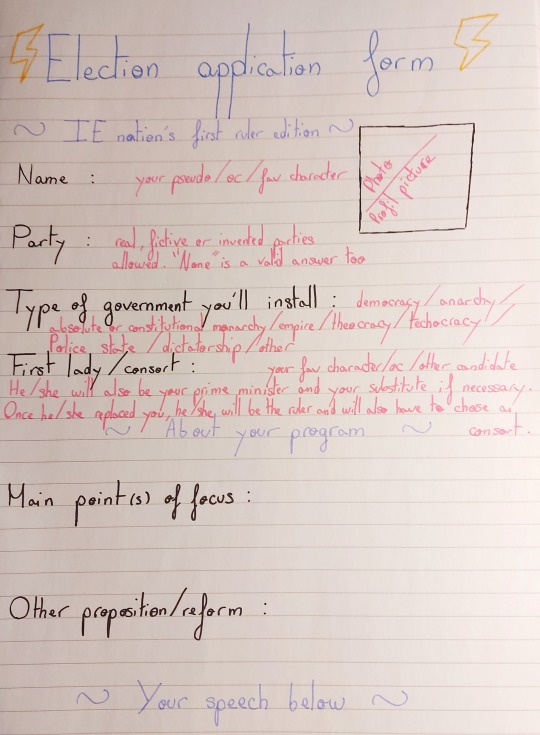 Election application form
~ IE nation's first ruler edition ~
Photo/
Profil picture
Name : your pseudo/oc/fav character
Party : real, fictive or invented parties
allowed. "None" is a valid answer too
Type of government you'll install : democracy/anarchy/
absolute or constitutional monarchy/empire/theocracy/techocracy/
Police state/dictatorship/other
First lady/consort : your fav character/oc/other candidate
He/she will also be your prime minister and your substitute if necessary.
Once he/she replaced you, he/she will be the ruler and will also have to chose a
consort.
~ About your program ~
Main point(s) of focus :
Other proposition/reform :
~ Your speech below ~